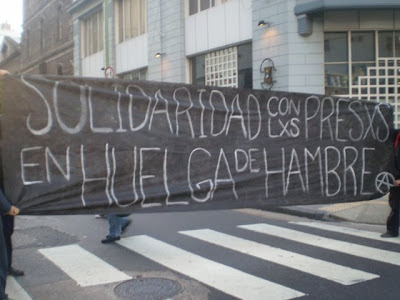 SOLIDARIDAD CON LXS PRESXS
EN HUELGA DE HAMBRE